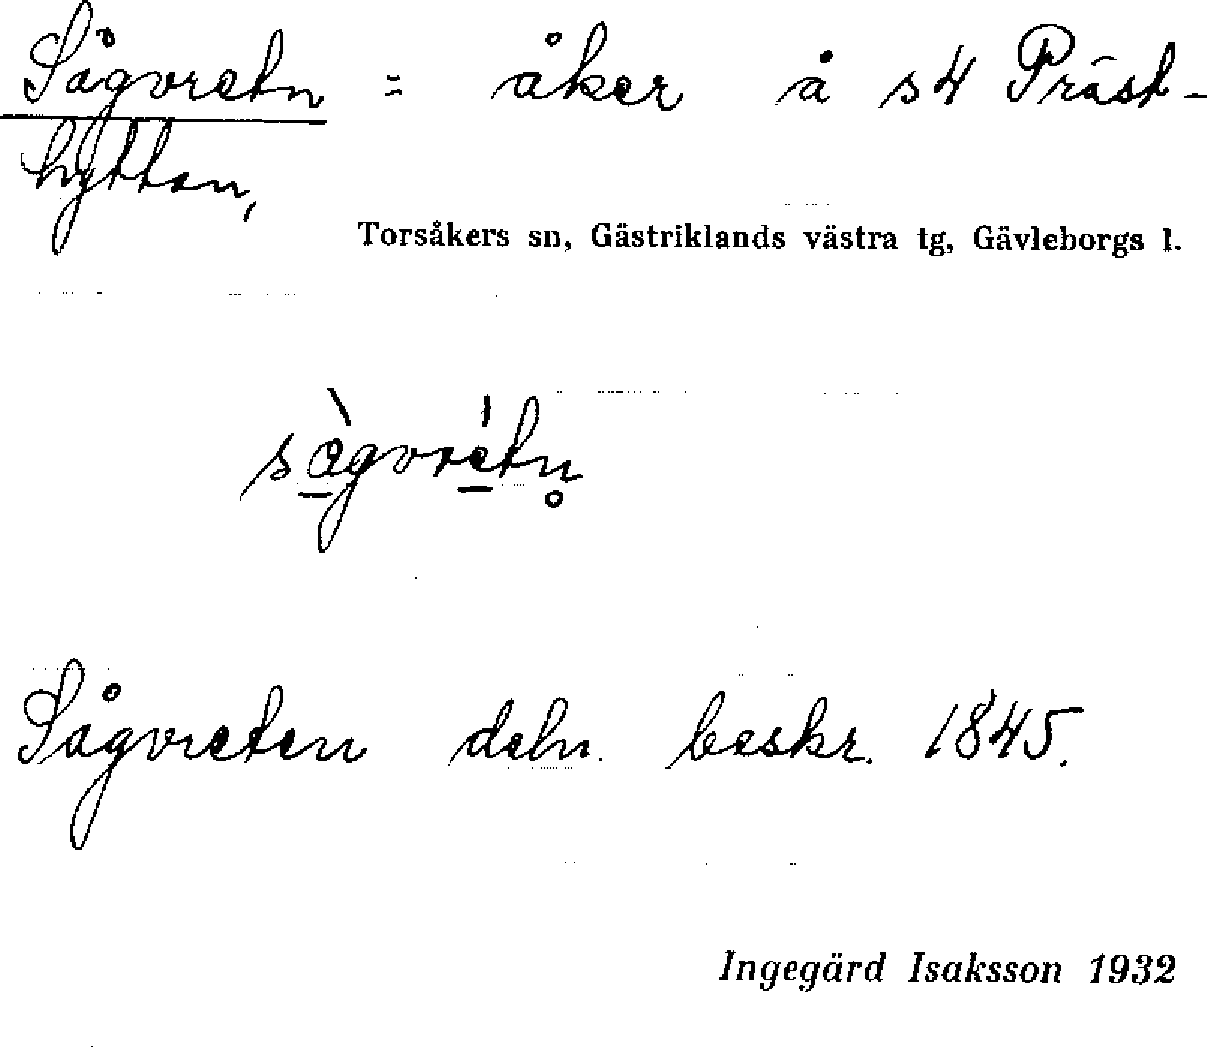 Sågvretn = åker å s4 Präst-
hyttan,
Torsåkers sn, Gästriklands västra tg, Gävleborgs l.
sàgvrétn̥
Sågvreten deln. beskr. 1845.
Ingegärd Isaksson 1932